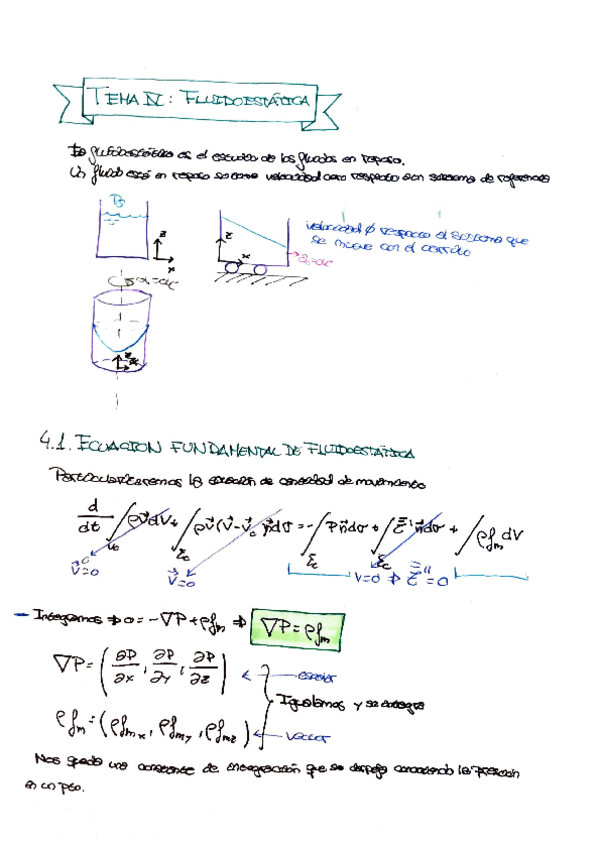 TEMA IV: FLUIDOESTÁTICA
La fluidoestática es el estudio de los fluidos en reposo.
Un fluido está en reposo si tiene velocidad cero respecto a un sistema de referencia
P₀
z
x
z
x
a=cte
velocidad ∅ respecto al sistema que
se mueve con el carrito
=cte
z
x
4.1. ECUACION FUNDAMENTAL DE FLUIDOESTÁTICA
Particularizaremos la ecuación de cantidad de movimiento
d/dt ∫ ρv⃗dV + ∫ ρv⃗(v⃗-v⃗c)n⃗dσ = -∫ Pn⃗dσ + ∫ τ̿'n⃗dσ + ∫ ρf⃗m dV
v⃗=0
v⃗=0
v=0 ⇒ τ̿''=0
- Integramos ⇒ 0 = -∇P + ρf⃗m ⇒ ∇P = ρf⃗m
∇P = (∂P/∂x, ∂P/∂y, ∂P/∂z) ← escalar
Igualamos y se integra
ρf⃗m = (ρfmx, ρfmy, ρfmz) ← vector
Nos queda una constante de integración que se despeja conociendo la presión
en un pto.